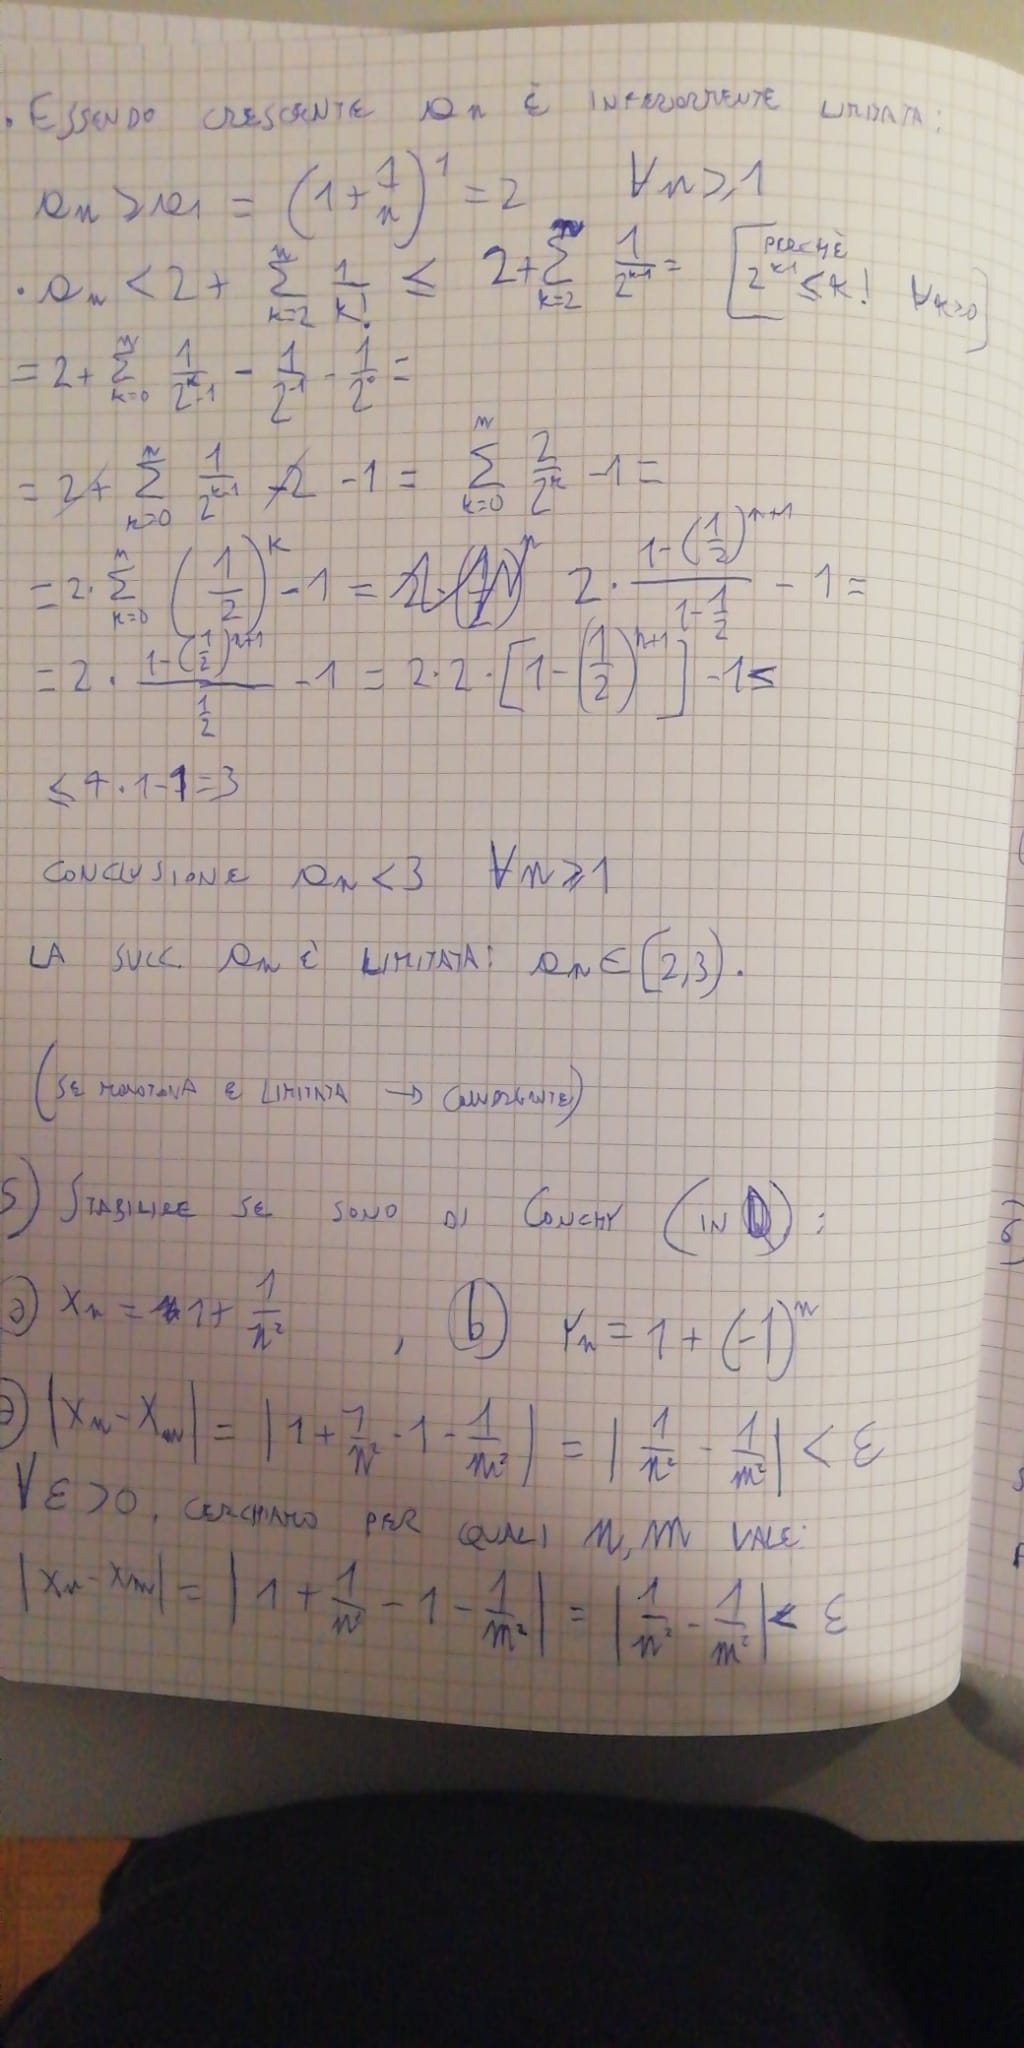 . ESSENDO CRESCENTE an È INFERIORMENTE LIMITATA:
an ≥ a1 = (1 + 1/n)^1 = 2 ∀n ≥ 1
· an < 2 + Σ_{k=2}^{n} 1/k! ≤ 2 + Σ_{k=2}^{n} 1/2^{k-1} = [PERCHÈ 2^{k-1} ≤ k! ∀k>0]
= 2 + Σ_{k=0}^{n} 1/2^{k-1} - 1/2^{-1} - 1/2^0 =
= 2 + Σ_{k=0}^{n} 1/2^{k-1} - 2 - 1 = Σ_{k=0}^{n} 2/2^k - 1 =
= 2 · Σ_{k=0}^{n} (1/2)^k - 1 = 2 · (1-(1/2)^{n+1})/(1-1/2) - 1 =
= 2 · (1-(1/2)^{n+1})/(1/2) - 1 = 2·2·[1-(1/2)^{n+1}] - 1 ≤
≤ 4·1-1 = 3
CONCLUSIONE an < 3 ∀n ≥ 1
LA SUCC. an È LIMITATA: an ∈ [2,3).
(SE MONOTONA E LIMITATA → CONVERGENTE)
5) STABILIRE SE SONO DI CONCHY (IN Q):
a) xn = 1 + 1/n² , b) Yn = 1 + (-1)^n
a) |xn - xm| = |1 + 1/n² - 1 - 1/m²| = |1/n² - 1/m²| < ε
∀ε>0, CERCHIAMO PER QUALI n, m VALE:
|xn - xm| = |1 + 1/n² - 1 - 1/m²| = |1/n² - 1/m²| < ε